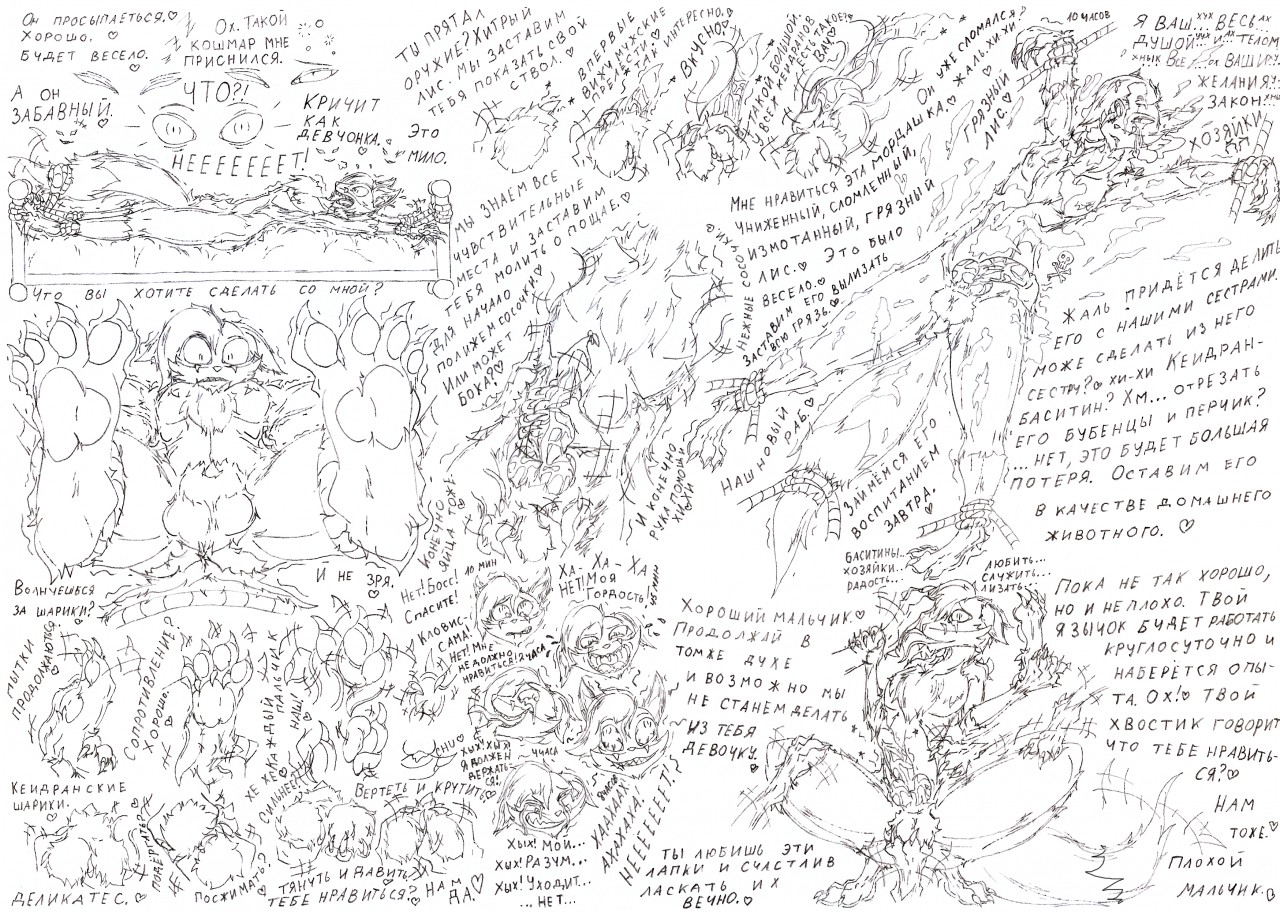 Он просыпаеться.♡
Хорошо. ♡
Будет весело.♡
Ох. Такой
кошмар мне
приснился.
А он
забавный.♡
Что?!
Кричит
как
девчонка.
Это
мило.
Нееееееет!
Что вы хотите сделать со мной?
Ты прятал
оружие? Хитрый
лис. Мы заставим
тебя показать свой
ствол.♡
Впервые
вижу мужские
прелести.♡
Так интересно.♡
Вкусно!♡
Такой большой.
У всех кейдранов
есть такое?
Вау♡
Он уже сломался?
Жаль. Хи-хи♡
Грязный
лис.♡
10 часов
Я ваш...хух весь ах
душой и телом
желания
закон!
Хозяйки
Мы знаем все
чувствительные
места и заставим
тебя молить о пощаде.♡
Для начало
полижем сосочки.♡
Или может
бока?♡
Нежные сосочки.♡
Мне нравиться эта мордашка.♡
Униженный, сломленный,
измотанный, грязный
лис.♡ Это было
весело.♡
Заставим его вылизать
всю грязь.♡
Наш новый
раб.♡
Займёмся его
воспитанием
завтра.♡
Жаль придётся делить
его с нашими сестрами.
Може сделать из него
сестру?♡ хи-хи Кейдран-
баситин? Хм... отрезать
его бубенцы и перчик?
...Нет, это будет большая
потеря. Оставим его
в качестве домашнего
животного. ♡
И конечно
рука помощи
хи-хи
Конечно.
Яйца тоже.
Й не зря.♡
Волнуешься
за шарики?
Пытки
продолжаються.♡
Сопротивление?
Хорошо.♡
Каждый
пальчик
наш!♡
Хе хе
Сильнее!♡
Кейдранские
шарики.♡
Деликатес.♡
Подёргить?
Посжимать?
Тянуть и давить♡
Тебе нравиться?
Вертеть и крутить♡
Нам
да.♡
10 мин
Нет! Босс!
Спасите!
Кловис-
сама!
Ха-ха-ха
Нет! Моя
гордость!
Нет! Мне
не должно
нравиться!
2 часа
Хых! Хых!
Я должен
держать-
ся!
4 часа
Хых! Мой...
Хых! Разум...
Хых! Уходит...
...Нет...
Хааааах
Ахахаха!
Нееееееет!
Хороший мальчик.♡
Продолжай в
томже духе
и возможно мы
не станем делать
из тебя
девочку.♡
Баситины..
хозяйки..
радость...
Любить...
служить...
лизать...
Пока не так хорошо,
но и неплохо. Твой
язычок будет работать
круглосуточно и
наберётся опы-
та. Ох!♡ Твой
хвостик говорит
что тебе нравить-
ся?♡
Нам
тоже.♡
Плохой
мальчик.♡
Ты любишь эти
лапки и счастлив
ласкать их
вечно.♡